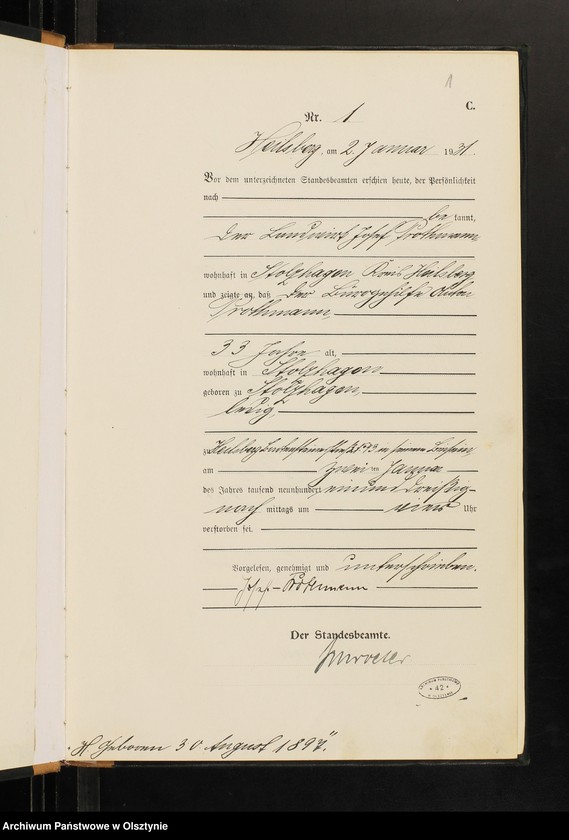 1
C.
Nr. 1
Heilsberg, am 2. Januar 1931
Vor dem unterzeichneten Standesbeamten erschien heute, der Persönlichkeit
nach
be kannt,
Der Landwirt Josef Prothmann,
wohnhaft in Stolzhagen Kreis Heilsberg
und zeigte an, daß der Bürogehilfe
Prothmann,
33 Jahre alt,
wohnhaft in Stolzhagen
geboren zu Stolzhagen,
ledig,
zu Heilsberg in seinem Beisein
am zwei ten Januar
des Jahres tausend neunhundert einund dreißig
nach mittags um vier Uhr
verstorben sei.
Vorgelesen, genehmigt und unterschrieben.
Josef Prothmann
Der Standesbeamte.
42
Geboren 30 August 1897."
Archiwum Państwowe w Olsztynie